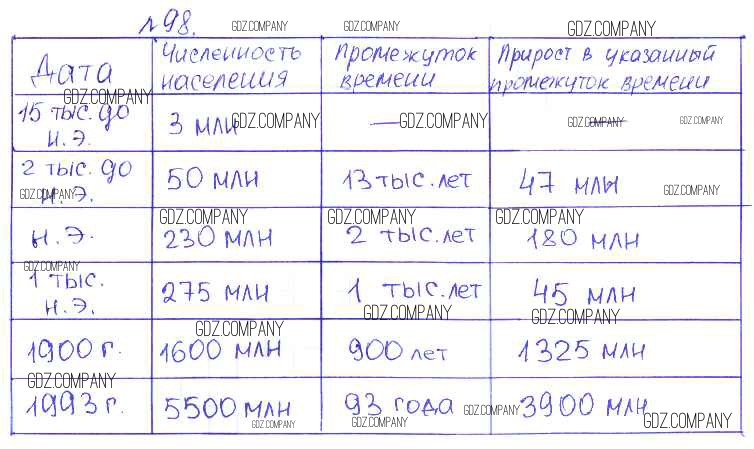 №98. GDZ.COMPANY GDZ.COMPANY GDZ.COMPANY
Дата Численность населения Промежуток времени Прирост в указанный промежуток времени
GDZ.COMPANY
15 тыс. до н.э. 3 млн GDZ.COMPANY — GDZ.COMPANY GDZ.COMPANY — GDZ.COMPANY
2 тыс. до н.э. 50 млн 13 тыс. лет 47 млн
GDZ.COMPANY GDZ.COMPANY
GDZ.COMPANY GDZ.COMPANY GDZ.COMPANY
н.э. 230 млн 2 тыс. лет 180 млн
GDZ.COMPANY
1 тыс. н.э. 275 млн 1 тыс. лет 45 млн
GDZ.COMPANY GDZ.COMPANY GDZ.COMPANY
1900 г. 1600 млн 900 лет 1325 млн
GDZ.COMPANY
1993 г. 5500 млн 93 года GDZ.COMPANY 3900 млн
GDZ.COMPANY GDZ.COMPANY GDZ.COMPANY